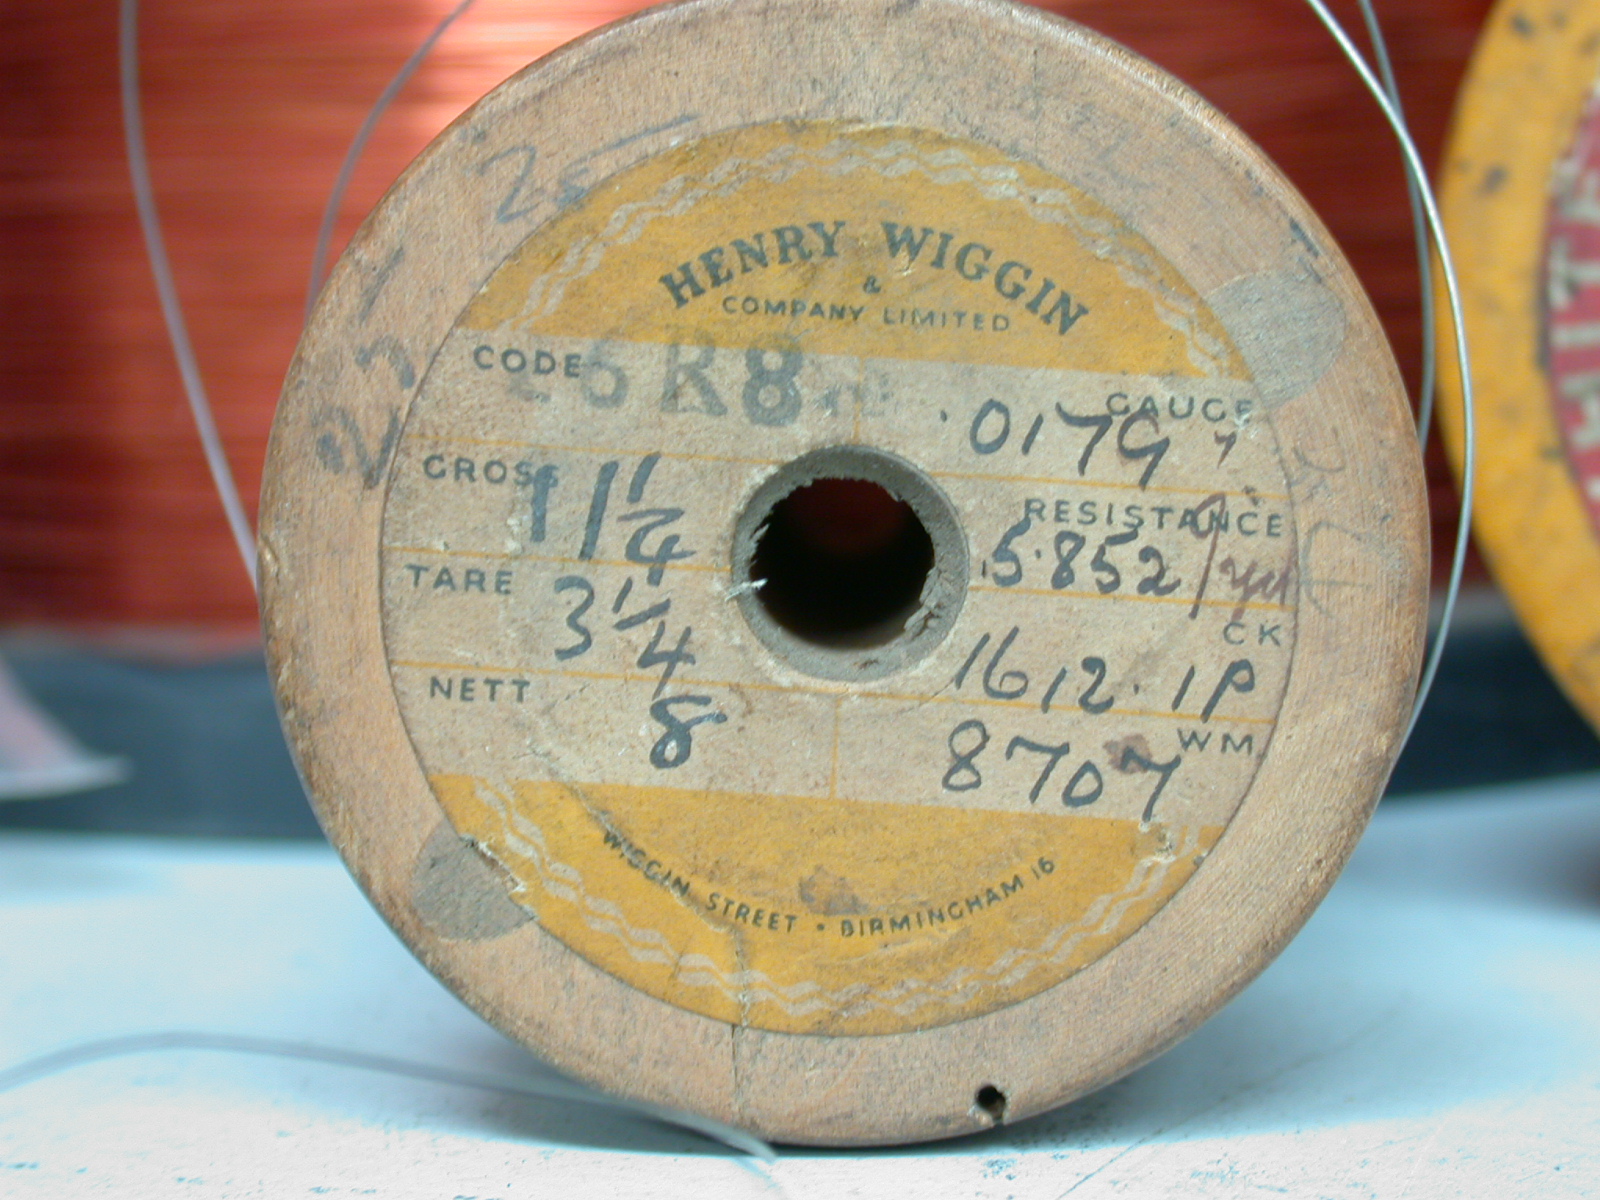 25
HENRY WIGGIN
&
COMPANY LIMITED
CODE
R8
GAUGE
.0179"
GROSS 11 1/4
RESISTANCE
5.852 /yd
TARE 3 1/4
CK
1612.1P
NETT 8
WM
8707
WIGGIN STREET • BIRMINGHAM 16